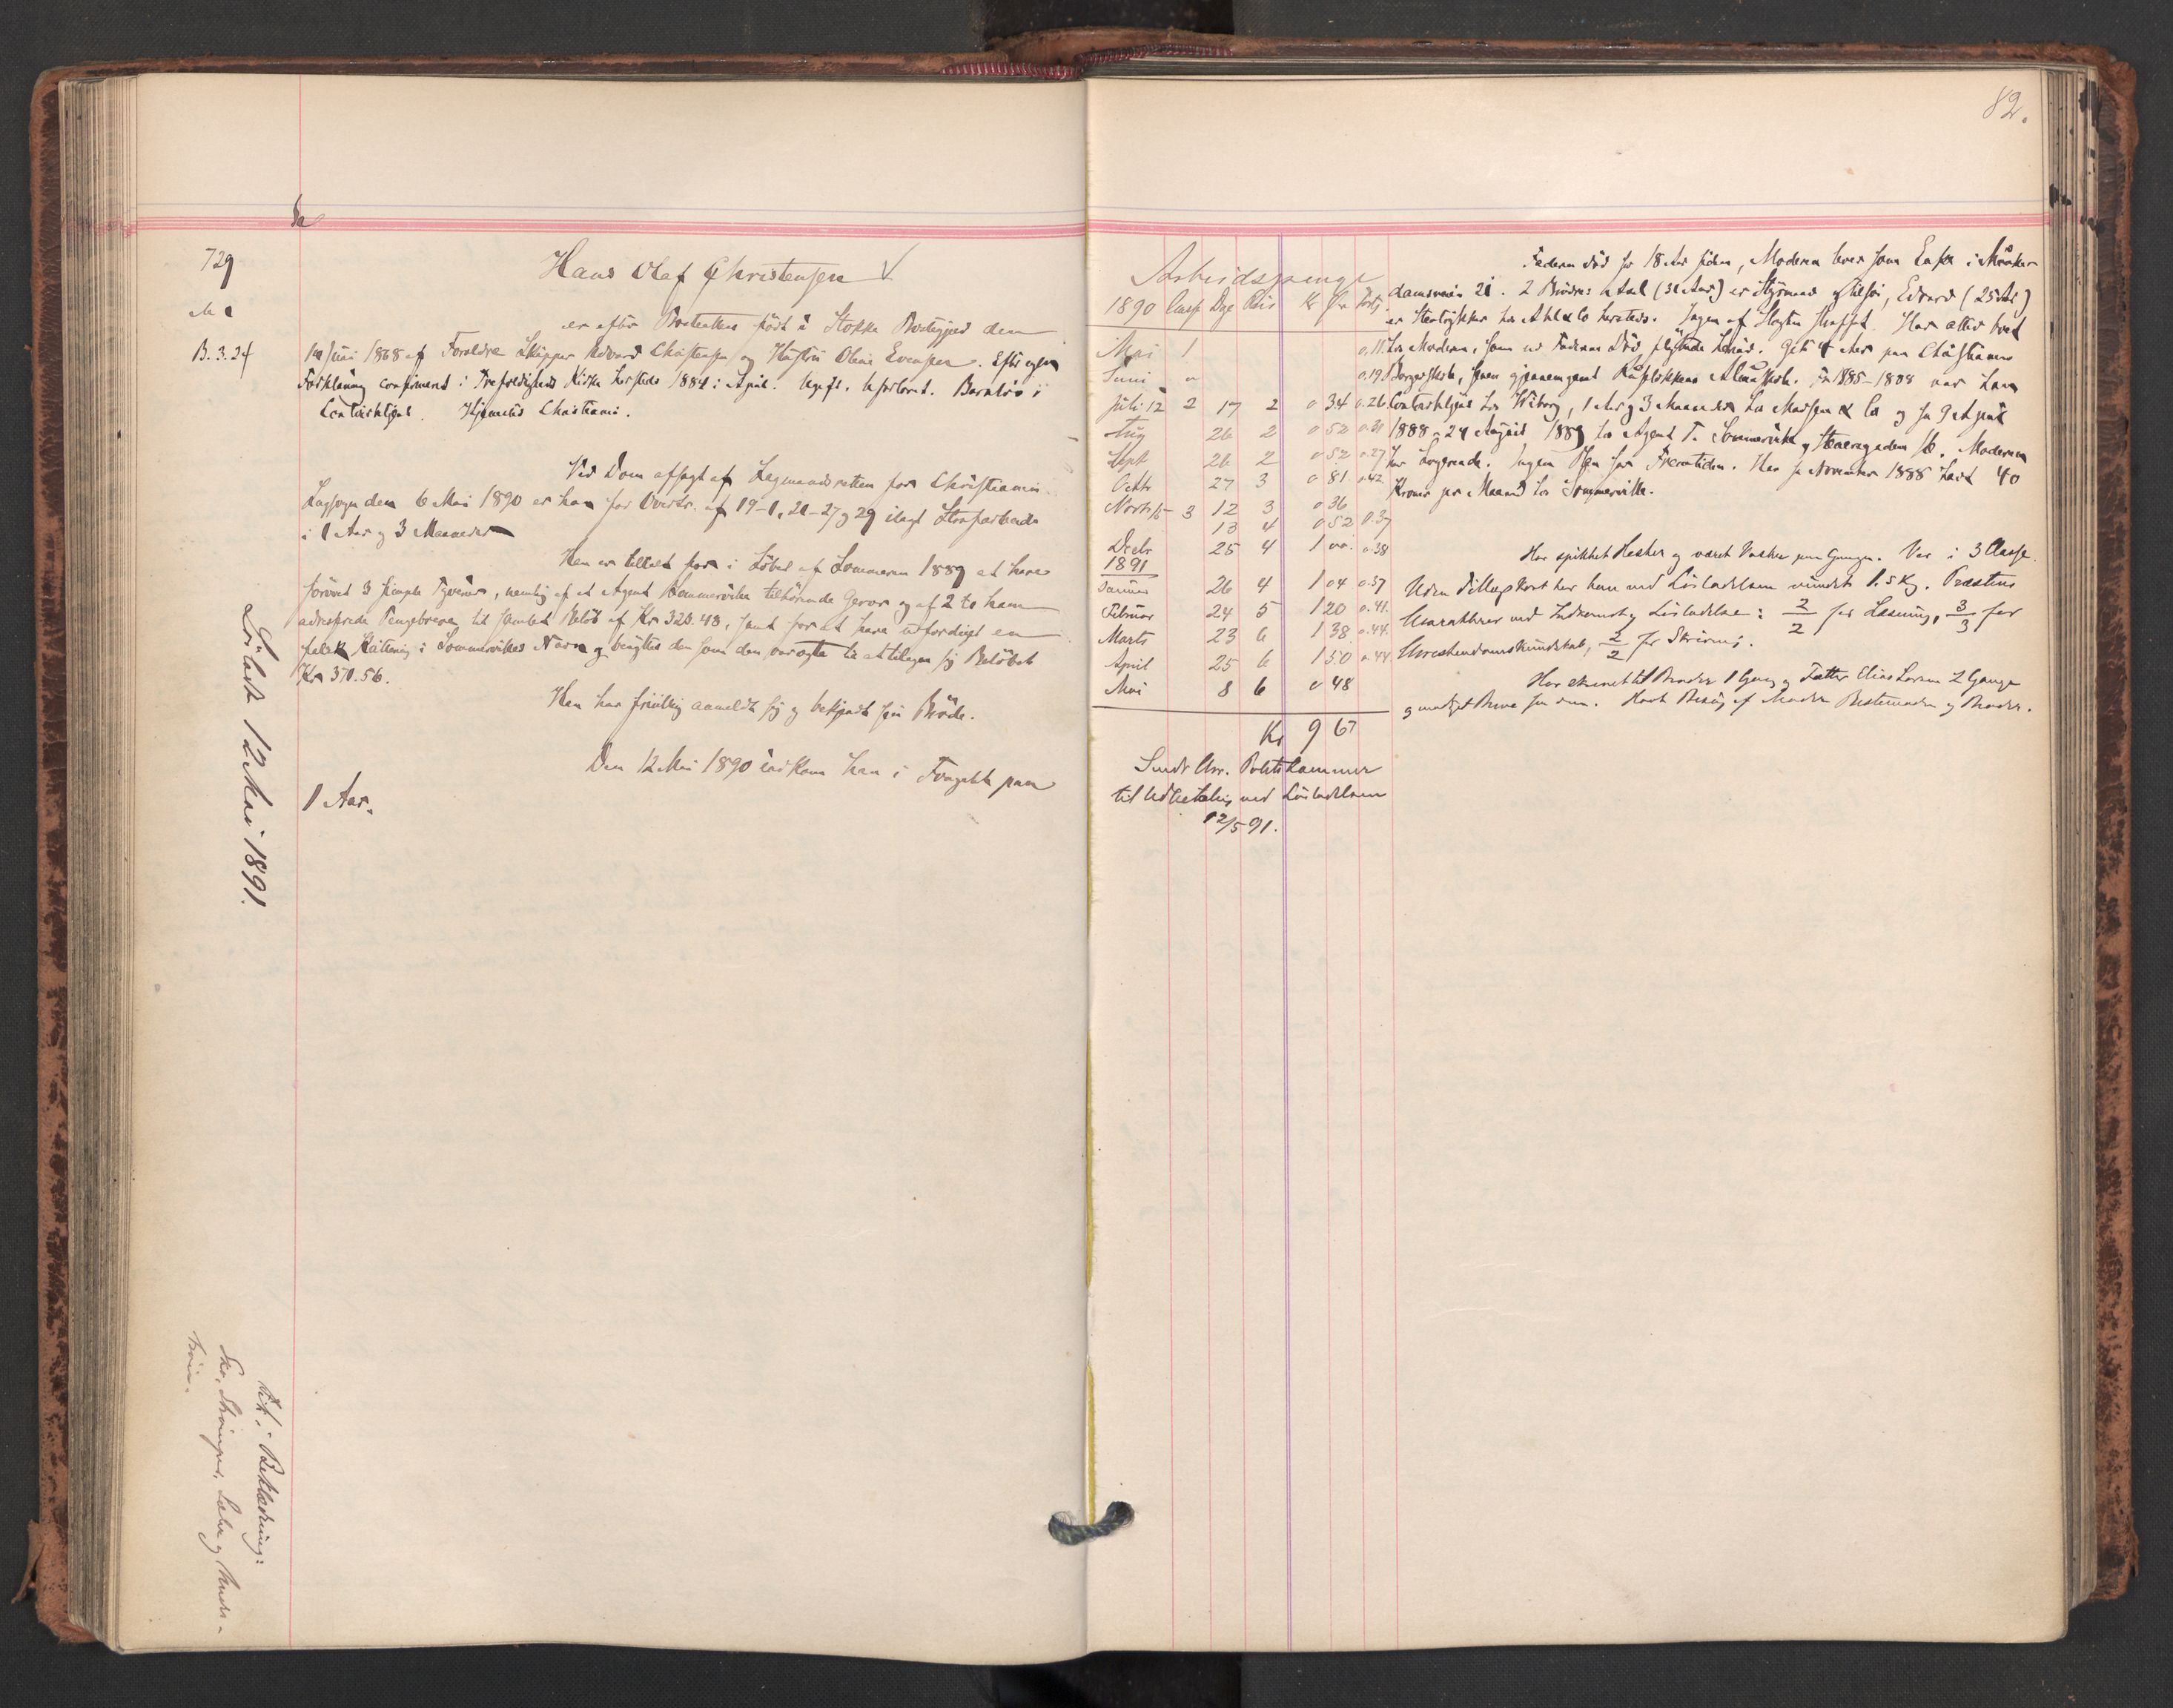 82.
729
B. 3. 24
Hans Olaf Christensen
er efter Protokollen født i Stokke Præstegjæld den
14 Juni 1868 af Forældre Skipper Edvard Christensen og Hustru Oline Evensen. Efter egen
Forklaring confirmeret i Trefoldigheds Kirke hersteds 1884 i April. Ugift. Uforlovet. Barnløs.
Contoirbetjent. Hjemsted Christiania.
Ved Dom afsagt af Lagmandsretten for Christiania
Lagsogn den 6 Mai 1890 er han for Overtr. af 19-1, 21-27 og 29 ilagt Strafarbeide
i 1 Aar og 3 Maaneder
Han er tiltalt for i Løbet af Sommeren 1889 at have
forøvet 3 simple Tyverier, nemlig af et Agent Sommervilles tilhørende og af 2 to ham
adresserede Pengebreve til samlet Beløb af Kr 323.43, samt for at have udfærdiget en
falsk Kvittering i Sommervilles Navn og benyttet den som den var ægte til at tilegne sig Beløbet
Kr 370.56.
Han har frivillig anmeldt sig og bekjendt sin Brøde.
Den 12 Mai 1890 indkom han i Fængslet paa
1 Aar.
Løsladt 12 Mai 1891.
Udl. Beklædning:
Sko, Strømper, og
Arbeidspenge
1890 Dage Kr Øre
Mai 1
Juni " 0.19
Juli 12 2 17 2 0 34 0.26
Aug 26 2 0 52 0.31
Sept 26 2 0 52 0.27
Octbr 27 3 0 81 0.42
Novbr 15 3 12 3 0 36
13 4 0 52 0.37
Decbr 25 4 1 00 0.38
1891
Januar 26 4 1 04 0.37
Februar 24 5 1 20 0.41
Marts 23 6 1 38 0.44
April 25 6 1 50 0.44
Mai 8 6 0 48
Kr 9 67
Sendt Chr. Politikammer
til Udbetaling ved Løsladelsen
12/5 91.
Faderen død for 18 Aar siden, Moderen lever som Enke i
damsveien 21. 2 Brødre: Axel (31 Aar) er Styrmand tilsøs, Edvard (25 Aar)
er Stentrykker hos & Co hersteds. Ingen af Slægten straffet. Har altid boet
hos Moderen, som ved Faderens Død flyttede herind. Gik 4 Aar paa Christiania
Borgerskole, senere gjennemgaaet Ruseløkkens Almueskole. Fra 1885-1888 var han
Contorbetjent hos Wiborg, 1 Aar og 3 Maaneder hos Madsen & Co og fra 9 April
1888 - 24 August 1889 hos Agent T. Sommerville. Moderen
har Logerende. Ingen for Fremtiden. Har fra November 1888 havt 40
Kroner pr Maaned hos Sommerville.
Har spikket Hesker og været Vasker paa Gangen. Var i 3 Classe
Uden Tillægskost har han ved Løsladelsen mindst 1.5 Kg. Præstens
Charakterer ved Indkomst og Løsladelse: 2/2 for Læsning, 3/3 for
Christendomskundskab, 2/2 for Skrivning.
Har skrevet til Broder 1 Gang og Fætter Elias Larsen 2 Gange
og modtaget Breve fra dem. Havt Besøg af Moder Bestemoder og Broder.